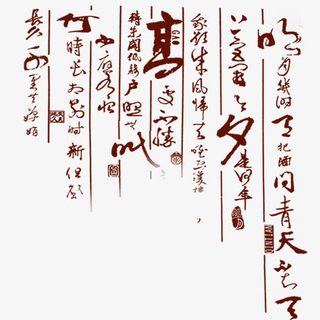 明月幾時有把酒問青天不知天
上宮闕今夕是何年
我欲乘風歸去
高處不勝
轉朱閣低綺戶照無眠
不應有恨
何時長向別時圓但願
長久千里共嬋娟